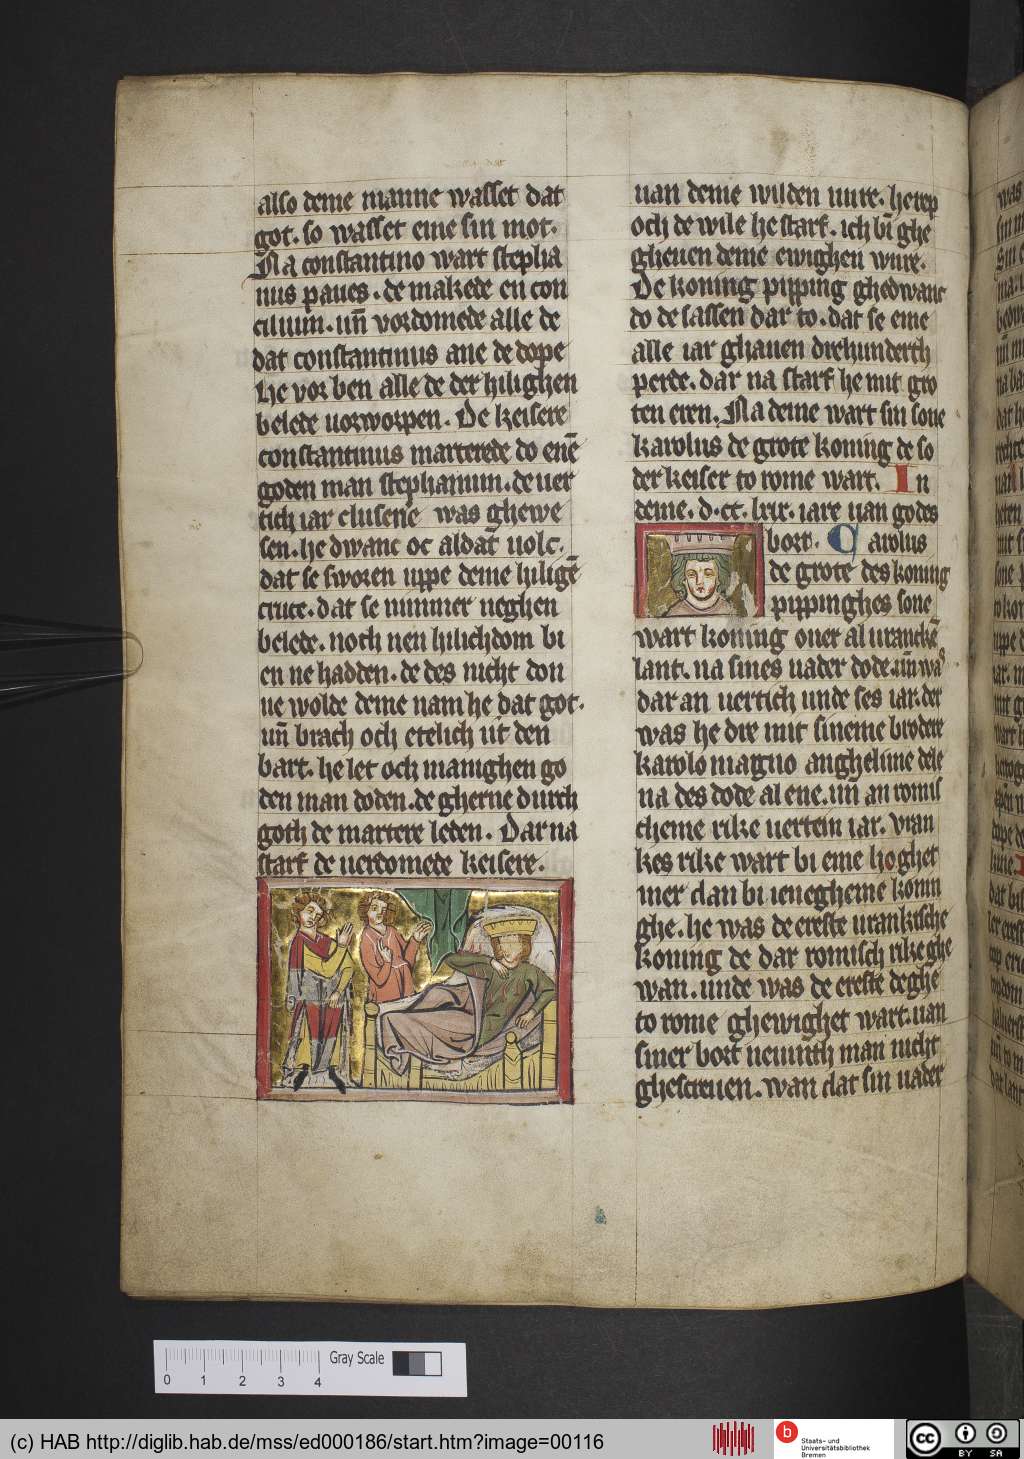 also deme manne wasset dat
got. so wasset eme sin mot.
Na constantino wart stepha
nus paues. de makede en con
cilium. uñ vordomede alle de
dat constantinus ane de dope
he vor ben alle de der hilighen
belede uorworpen. De keisere
constantinus marterede do enē
goden man stephanum. de uer
tich iar clusenē was ghewe
sen. he dwanc oc al dat volc.
dat se sworen uppe deme hiligē
cruce. dat se nimmer neghen
belede. noch nen hilichdom bi
en ne hadden. de des nicht don
ne wolde deme nam he dat got.
uñ brach och etelich ut den
bart. he let och manighen go
den man doden. de gherne durch
goth de martere leden. Dar na
starf de uerdomede keisere.
uan deme wilden uure. he rep
och de wile he starf. ich bī ghe
gheuen deme ewighen wure.
De koning pipping ghedwanc
do de sassen dar to. dat se eme
alle iar ghauen drehunderth
perde. dar na starf he mit gro
ten eren. Na deme wart sin sone
karolus de grote koning de so
der keiser to rome wart. In
deme. d.cc. lxix. iare uan godes
bort. Carolus
de grote des koning
pippinghes sone
wart koning ouer al uranckē
lant. na sines uader dode. uñ was
dar an uertich unde ses iar. der
was he dre mit sineme brodere
karolo magno an gheliime dele
na des dode al ene. uñ an romis
cheme rike uertein iar. vran
kes rike wart bi eme hoghet
mer dan bi ienegheme konin
ghe. he was de erste urankische
koning de dar romisch rike ghe
wan. unde was de erste de ghe
to rome ghewighet wart. uan
siner bort neuinth man nicht
ghescreuen. wan dat sin uader
Gray Scale
0 1 2 3 4
(c) HAB http://diglib.hab.de/mss/ed000186/start.htm?image=00116
b
Staats- und
Universitätsbibliothek
Bremen
cc
BY SA